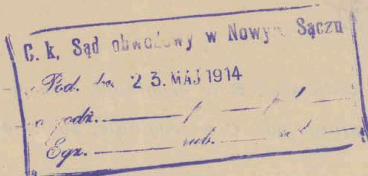 C. k. Sąd obwodowy w Nowym Sączu
Pod. 23. MAJ 1914
o godz.
Egz. rub.